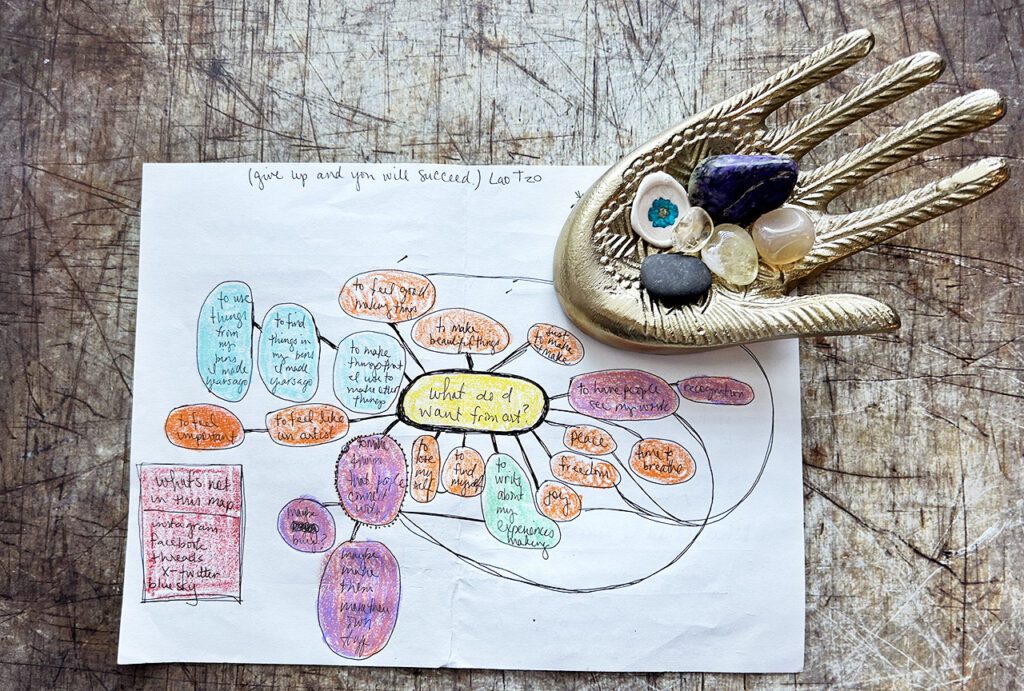 (give up and you will succeed.) Lao Tzo
to feel good
making things
to make
beautiful things
just
to make
to use
things
from
my
pens
I made
years ago
to find
things in
my pens
I made
years ago
to make
things that
I use to
make other
things
What do I
want from art?
to have people
see my work
recognition
to feel
important
to feel like
an artist
to make
things
that people
connect
with
to
lose
my
self
to
find
myself
to
write
about
my
experiences
making
peace
freedom
joy
time to
breathe
maybe
buy?
maybe
make
them
their
own
what's not
in this map
instagram
facebook
threads
X-twitter
bluesky